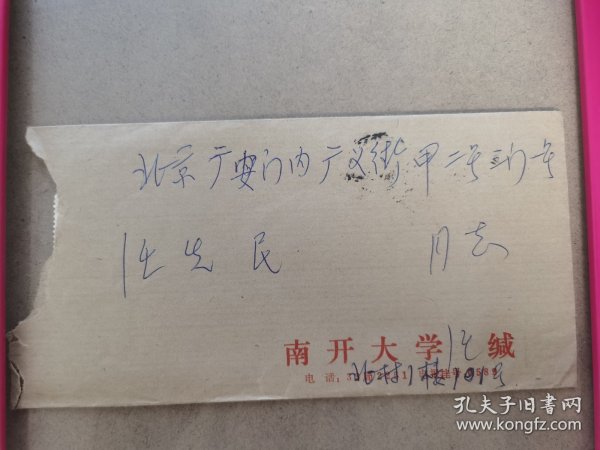 北京广安门内广义街甲二号三门号
任先民 同志
南开大学任缄
北村1楼101号
电话:
孔夫子旧书网
www.kongfz.com